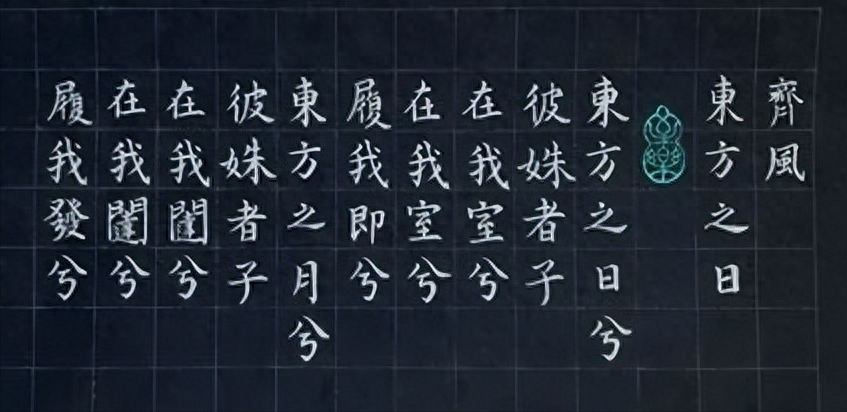 齊風
東方之日
東方之日兮
彼姝者子
在我室兮
在我室兮
履我即兮
東方之月兮
彼姝者子
在我闥兮
在我闥兮
履我發兮